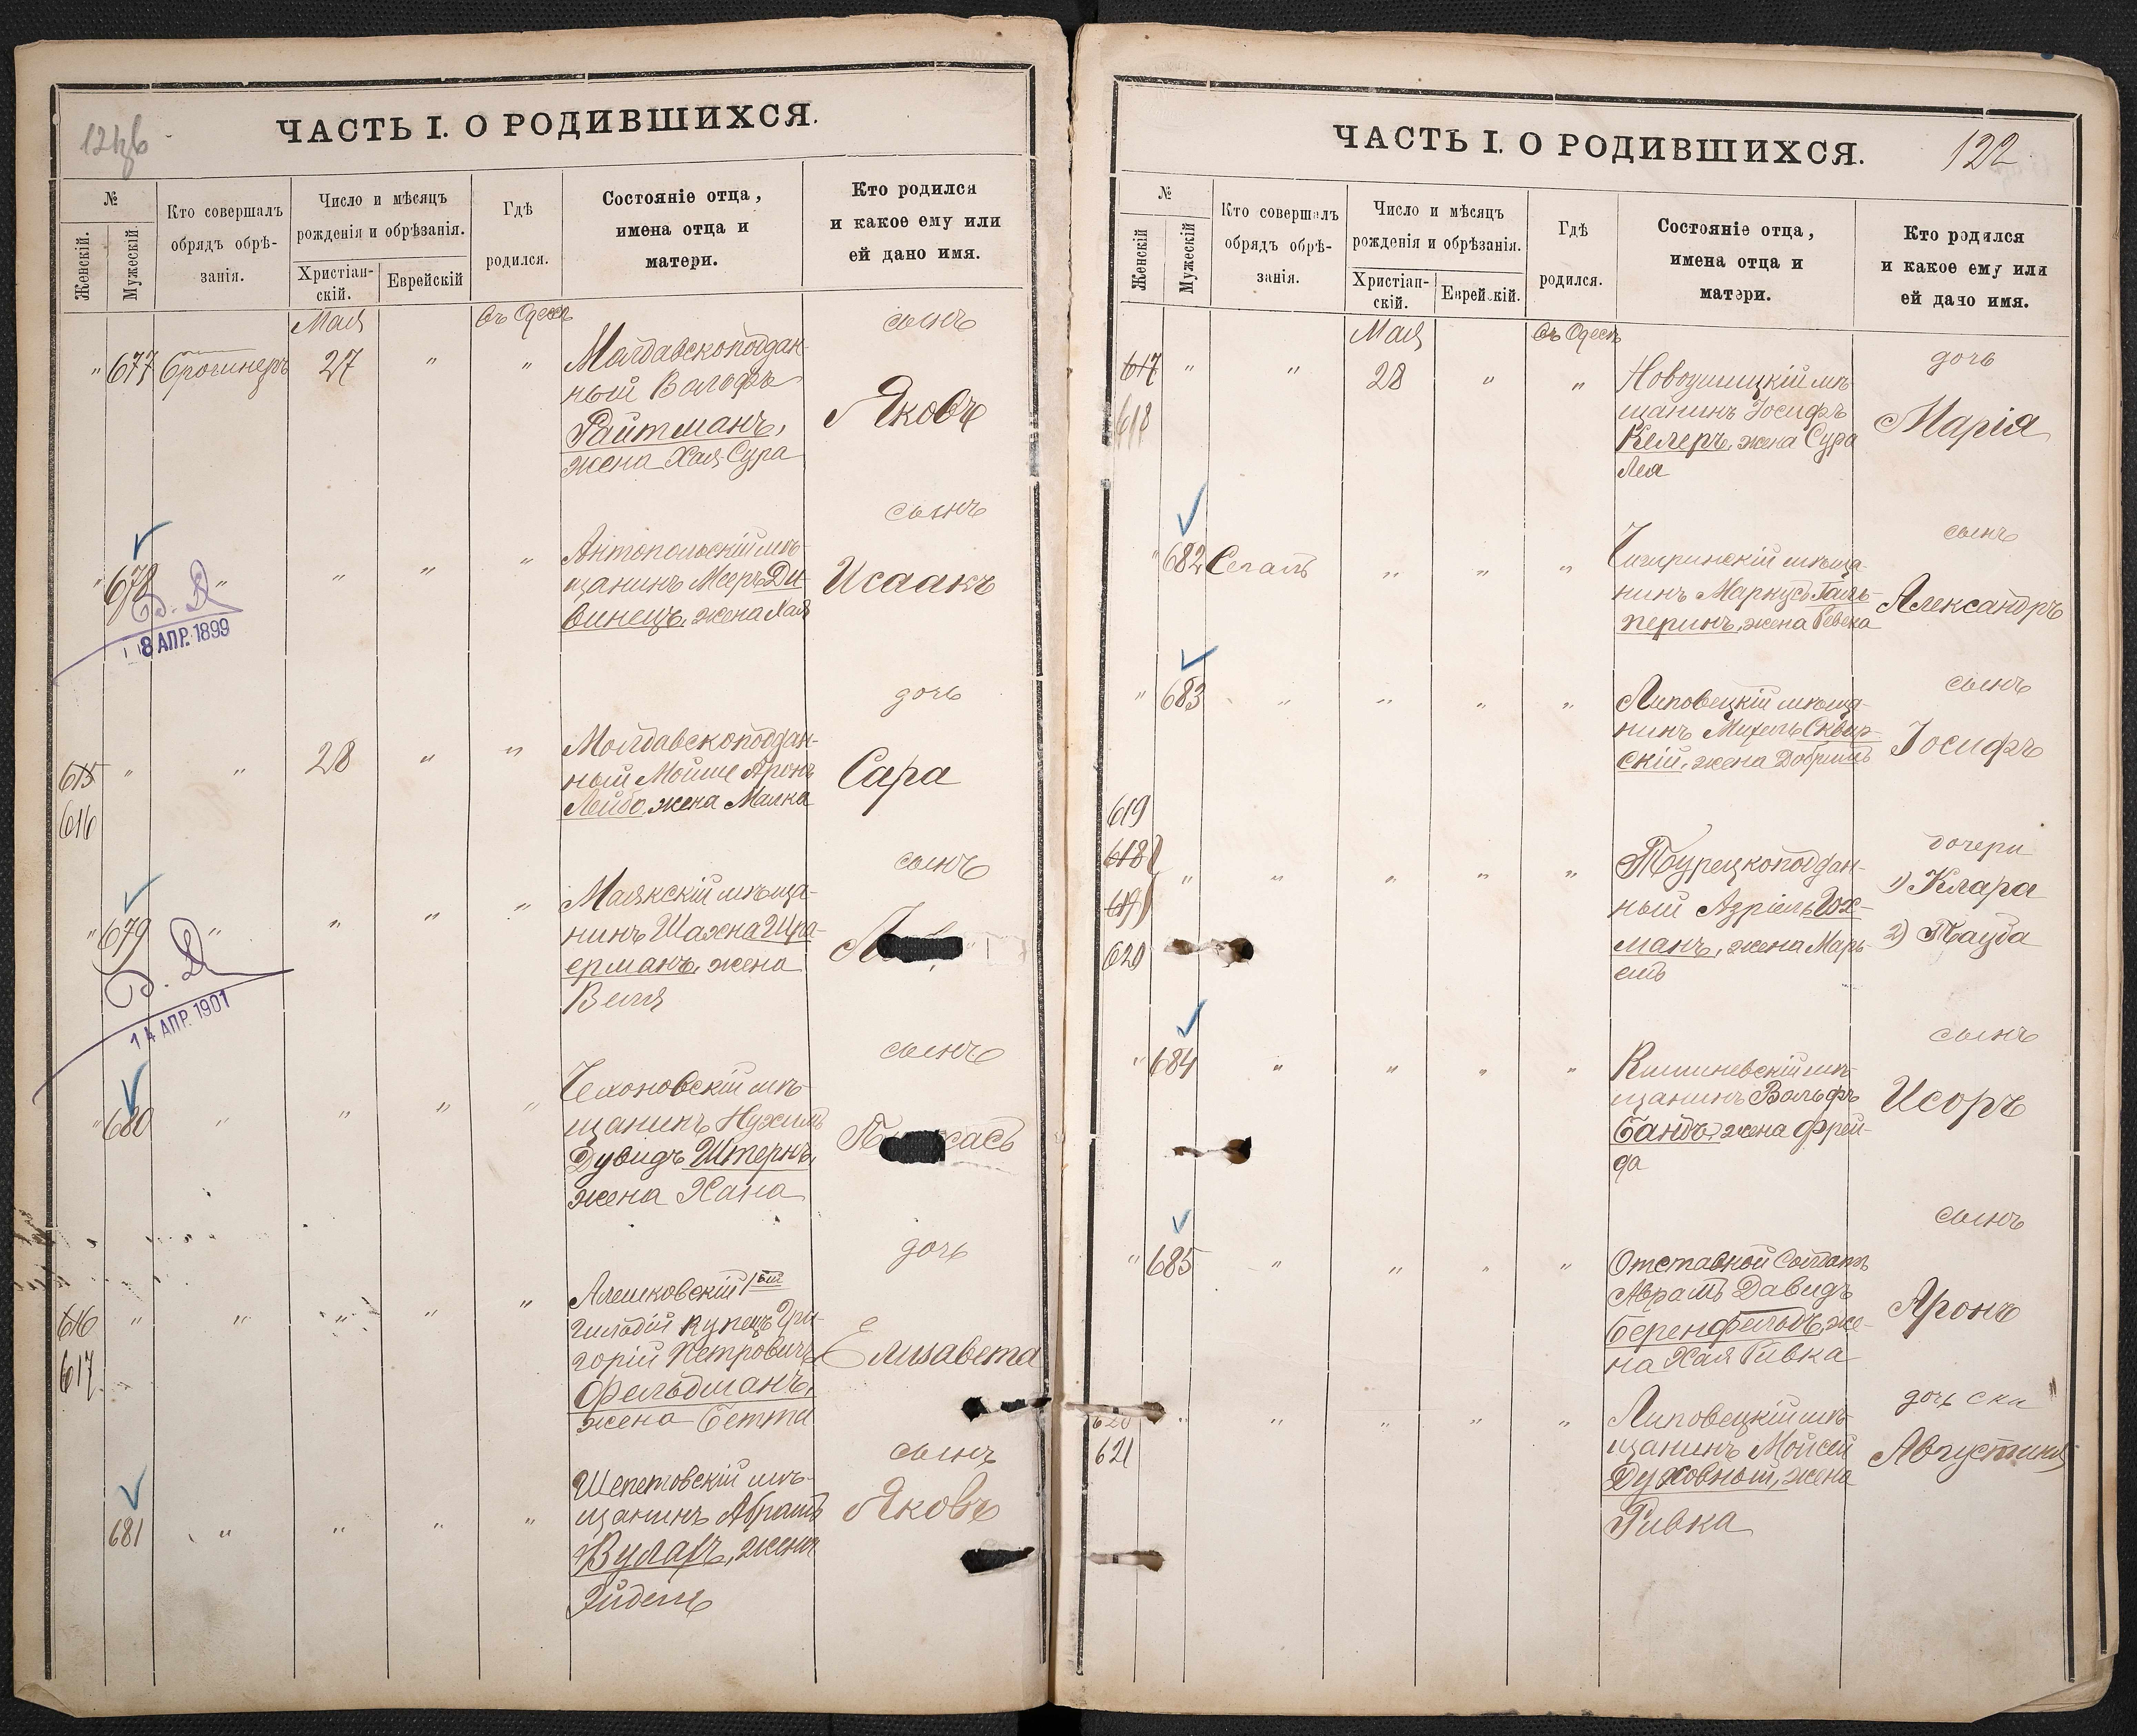 121 об
ЧАСТЬ I. О РОДИВШИХСЯ.
№
Женскій.
Мужескій
Кто совершалъ
обрядъ обрѣ-
занія.
Число и мѣсяцъ
рожденія и обрѣзанія.
Христіан-
скій.
Еврейскій
Гдѣ
родился.
Состояніе отца,
имена отца и
матери.
Кто родился
и какое ему или
ей дано имя.
Мая
въ Одессѣ
сынъ
" 677
27 " "
Молдавскоподдан-
ный Вольфъ
Райтманъ,
жена Хая-Сура
Яковъ
сынъ
" 678 " " " "
Антопольскій мѣ-
щанинъ Мееръ Ди-
винецъ, жена Хая
Исаакъ
8 АПР. 1899
дочь
615 " " 28 " "
616
Молдавскоподдан-
ный Мойше Аронъ
Лейбо, жена Малка
Сара
сынъ
" 679 " " " "
Маякскій мѣща-
нинъ Шахна Шра-
ерманъ, жена
Веля
14 АПР. 1901
сынъ
" 680 " " " "
мѣ-
щанинъ Нухимъ
Дувидъ Штернъ,
жена Хана
дочь
616 " " " " "
617
Алешковскій 1ой
гильдіи купецъ Гри-
горій Петровичъ
Фельдманъ,
жена Бетти
Елизавета
сынъ
681 " " " "
Шепетовскій мѣ-
щанинъ Абрамъ
Вуларъ, жена
Эйдель
Яковъ
122
ЧАСТЬ I. О РОДИВШИХСЯ.
№
Женскій
Мужескій
Кто совершалъ
обрядъ обрѣ-
занія.
Число и мѣсяцъ
рожденія и обрѣзанія.
Христіан-
скій.
Еврейскій.
Гдѣ
родился.
Состояніе отца,
имена отца и
матери.
Кто родился
и какое ему или
ей дано имя.
Мая
въ Одессѣ
дочь
617 " " 28 " "
618
Новоушицкій мѣ-
щанинъ Іосифъ
Келеръ, жена Сура
Лея
Марія
сынъ
" 682 Сегалъ " " "
Чигиринскій мѣща-
нинъ Маркусъ Галь-
перинъ, жена Ревека
Александръ
сынъ
" 683 " " " "
Липовецкій мѣща-
нинъ Михель Сквир-
скій, жена
Іосифъ
619
618
619
620
" " " " "
Турецкоподдан-
ный Азріель Гох-
манъ, жена Марь-
емъ
дочери
1) Клара
2) Тауба
сынъ
" 684 " " " "
Кишиневскій мѣ-
щанинъ Вольфъ
Бандъ, жена Фрей-
да
Исоръ
сынъ
" 685 " " " "
Отставной Солдатъ
Абрамъ Давидъ
Беренфельдъ, же-
на Хая Ривка
Аронъ
дочь
620 " " " " "
621
Липовецкій мѣ-
щанинъ Мойсей
Духовный, жена
Ривка